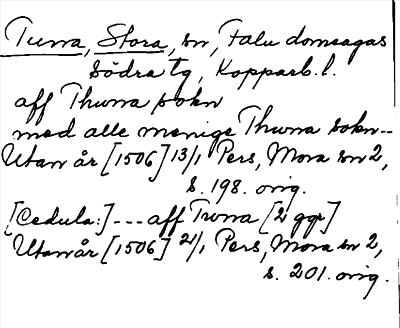 Tuna, Stora, sn, Falu domsagas
södra tg, Kopparb. l.
aff Thuna sokn
mad alle menige Thuna sokn--
Utan år [1506] 13/1 Pers, Mora sn 2,
s. 198. orig.
[Cedula:] --- aff Twna [2 ggr]
Utan år [1506] 21/1 Pers, Mora sn 2,
s. 201. orig.